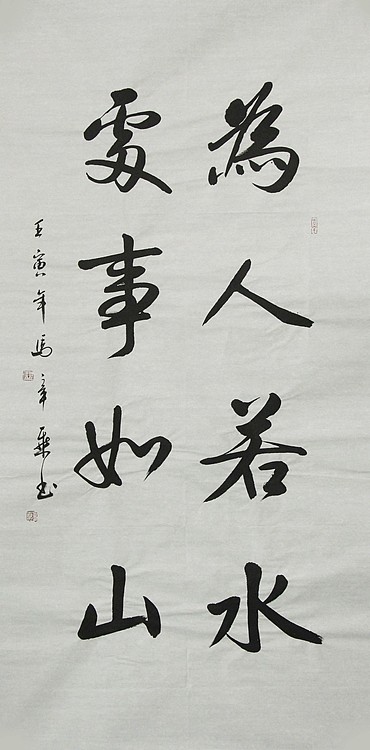 為人若水
處事如山
壬寅年馬辛乘书